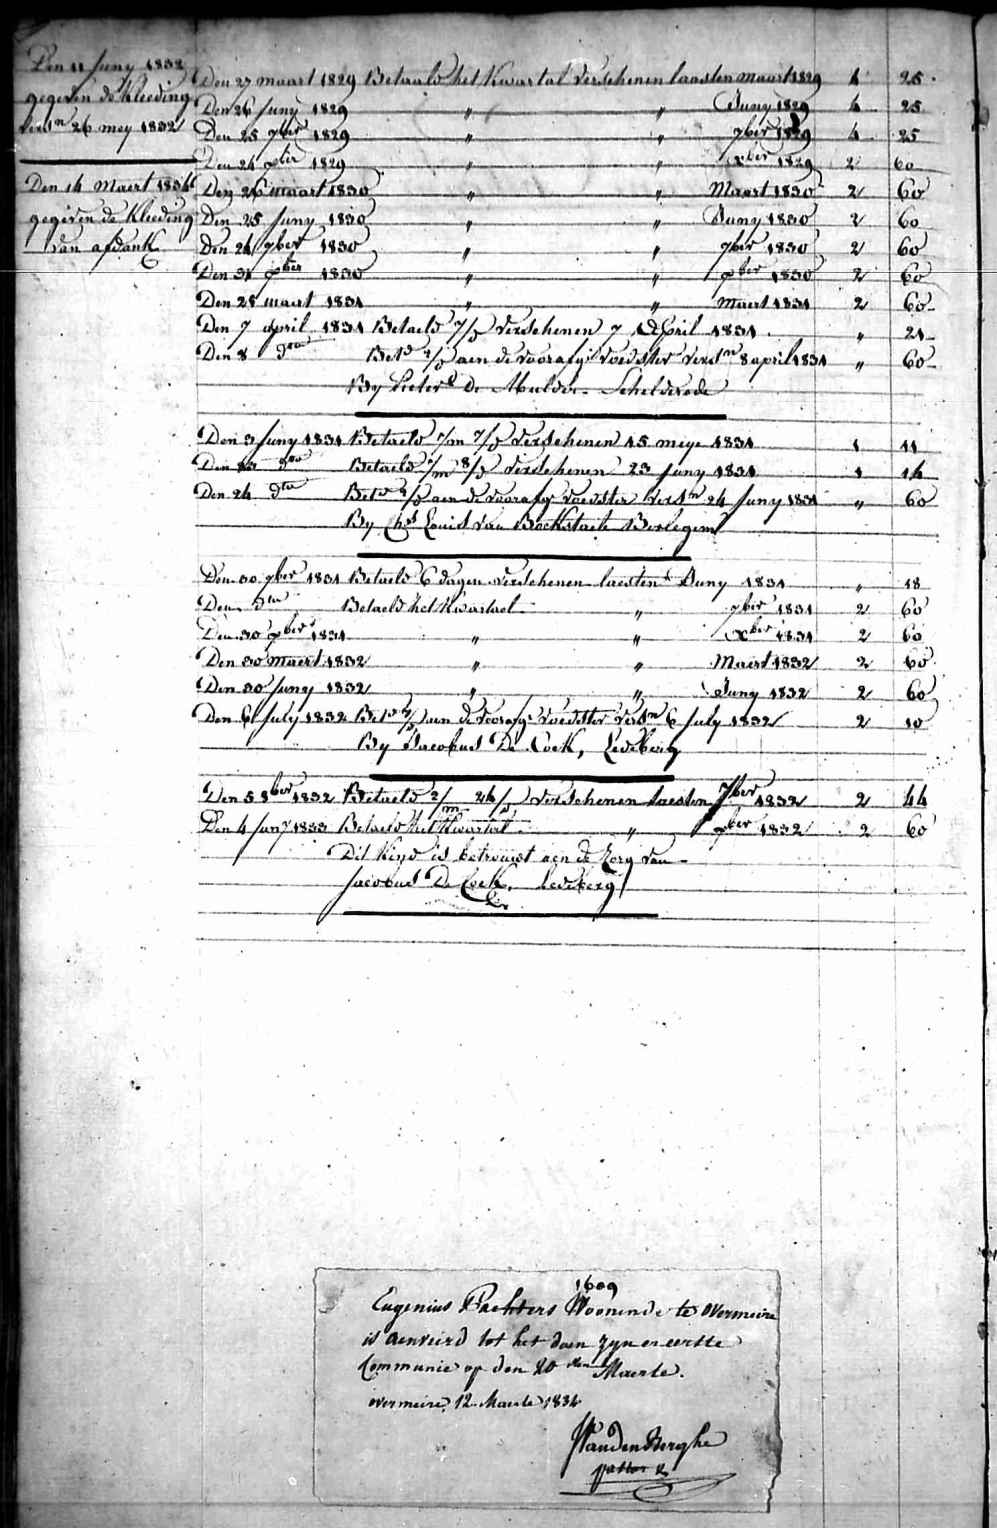 Den 11 Juny 1832
gegeven de Kleeding
versn 26 mey 1832
Den 14 Maert 1834
gegeven de Kleeding
van afdank
Den 27 maart 1829 Betaald het Kwartal verschenen laasten maart 1829 4 25
Den 26 Juny 1829 " " Juny 1829 4 25
Den 25 7ber 1829 " " 7ber 1829 4 25
Den 24 xber 1829 " " xber 1829 2 60
Den 26 maart 1830 " " Maart 1830 2 60
Den 25 Juny 1830 " " Juny 1830 2 60
Den 24 7ber 1830 " " 7ber 1830 2 60
Den 31 xber 1830 " " xber 1830 2 60
Den 28 maert 1831 " " Maert 1831 2 60
Den 7 April 1831 Betaeld 7/d verschenen 7 April 1831 " 21
Den 8 do Betd aen de voorafge voedster versn 8 april 1831 " 60
By Pieter De Mulder Schelderode
Den 3 Juny 1831 Betaeld 1/m 7/d verschenen 15 meye 1831 1 11
Den 23 do Betaeld 1/m 8/d verschenen 23 Juny 1831 1 14
Den 24 do Betd aen de voorafge voedster versn 24 Juny 1831 " 60
By Chs Louis van Bockstaele Borlegem
Den 30 7ber 1831 Betaeld 6 dagen verschenen laesten Juny 1831 " 18
Den do Betaeld het Kwartael " 7ber 1831 2 60
Den 30 xber 1831 " " xber 1831 2 60
Den 30 Maert 1832 " " Maert 1832 2 60
Den 30 Juny 1832 " " Juny 1832 2 60
Den 6 July 1832 Betd aen de voorafge voedster versn 6 July 1832 2 10
By Jacobus De Cock, Ledeberg
Den 5 8ber 1832 Betaeld 2/m 24/d verschenen laesten 7ber 1832 2 44
Den 4 Jany 1833 Betaeld het Kwartal " xber 1832 2 60
Dit Kind is betrouwt aen de Zorg van
Jacobus De Cock, Ledeberg
1609
Eugenius Pachters Woonende te Overmeire
is aenveird tot het doen zyner eerste
Communie op den 20 sten Maerte.
overmeire, 12 Maerte 1834
VandenBerghe
pastor